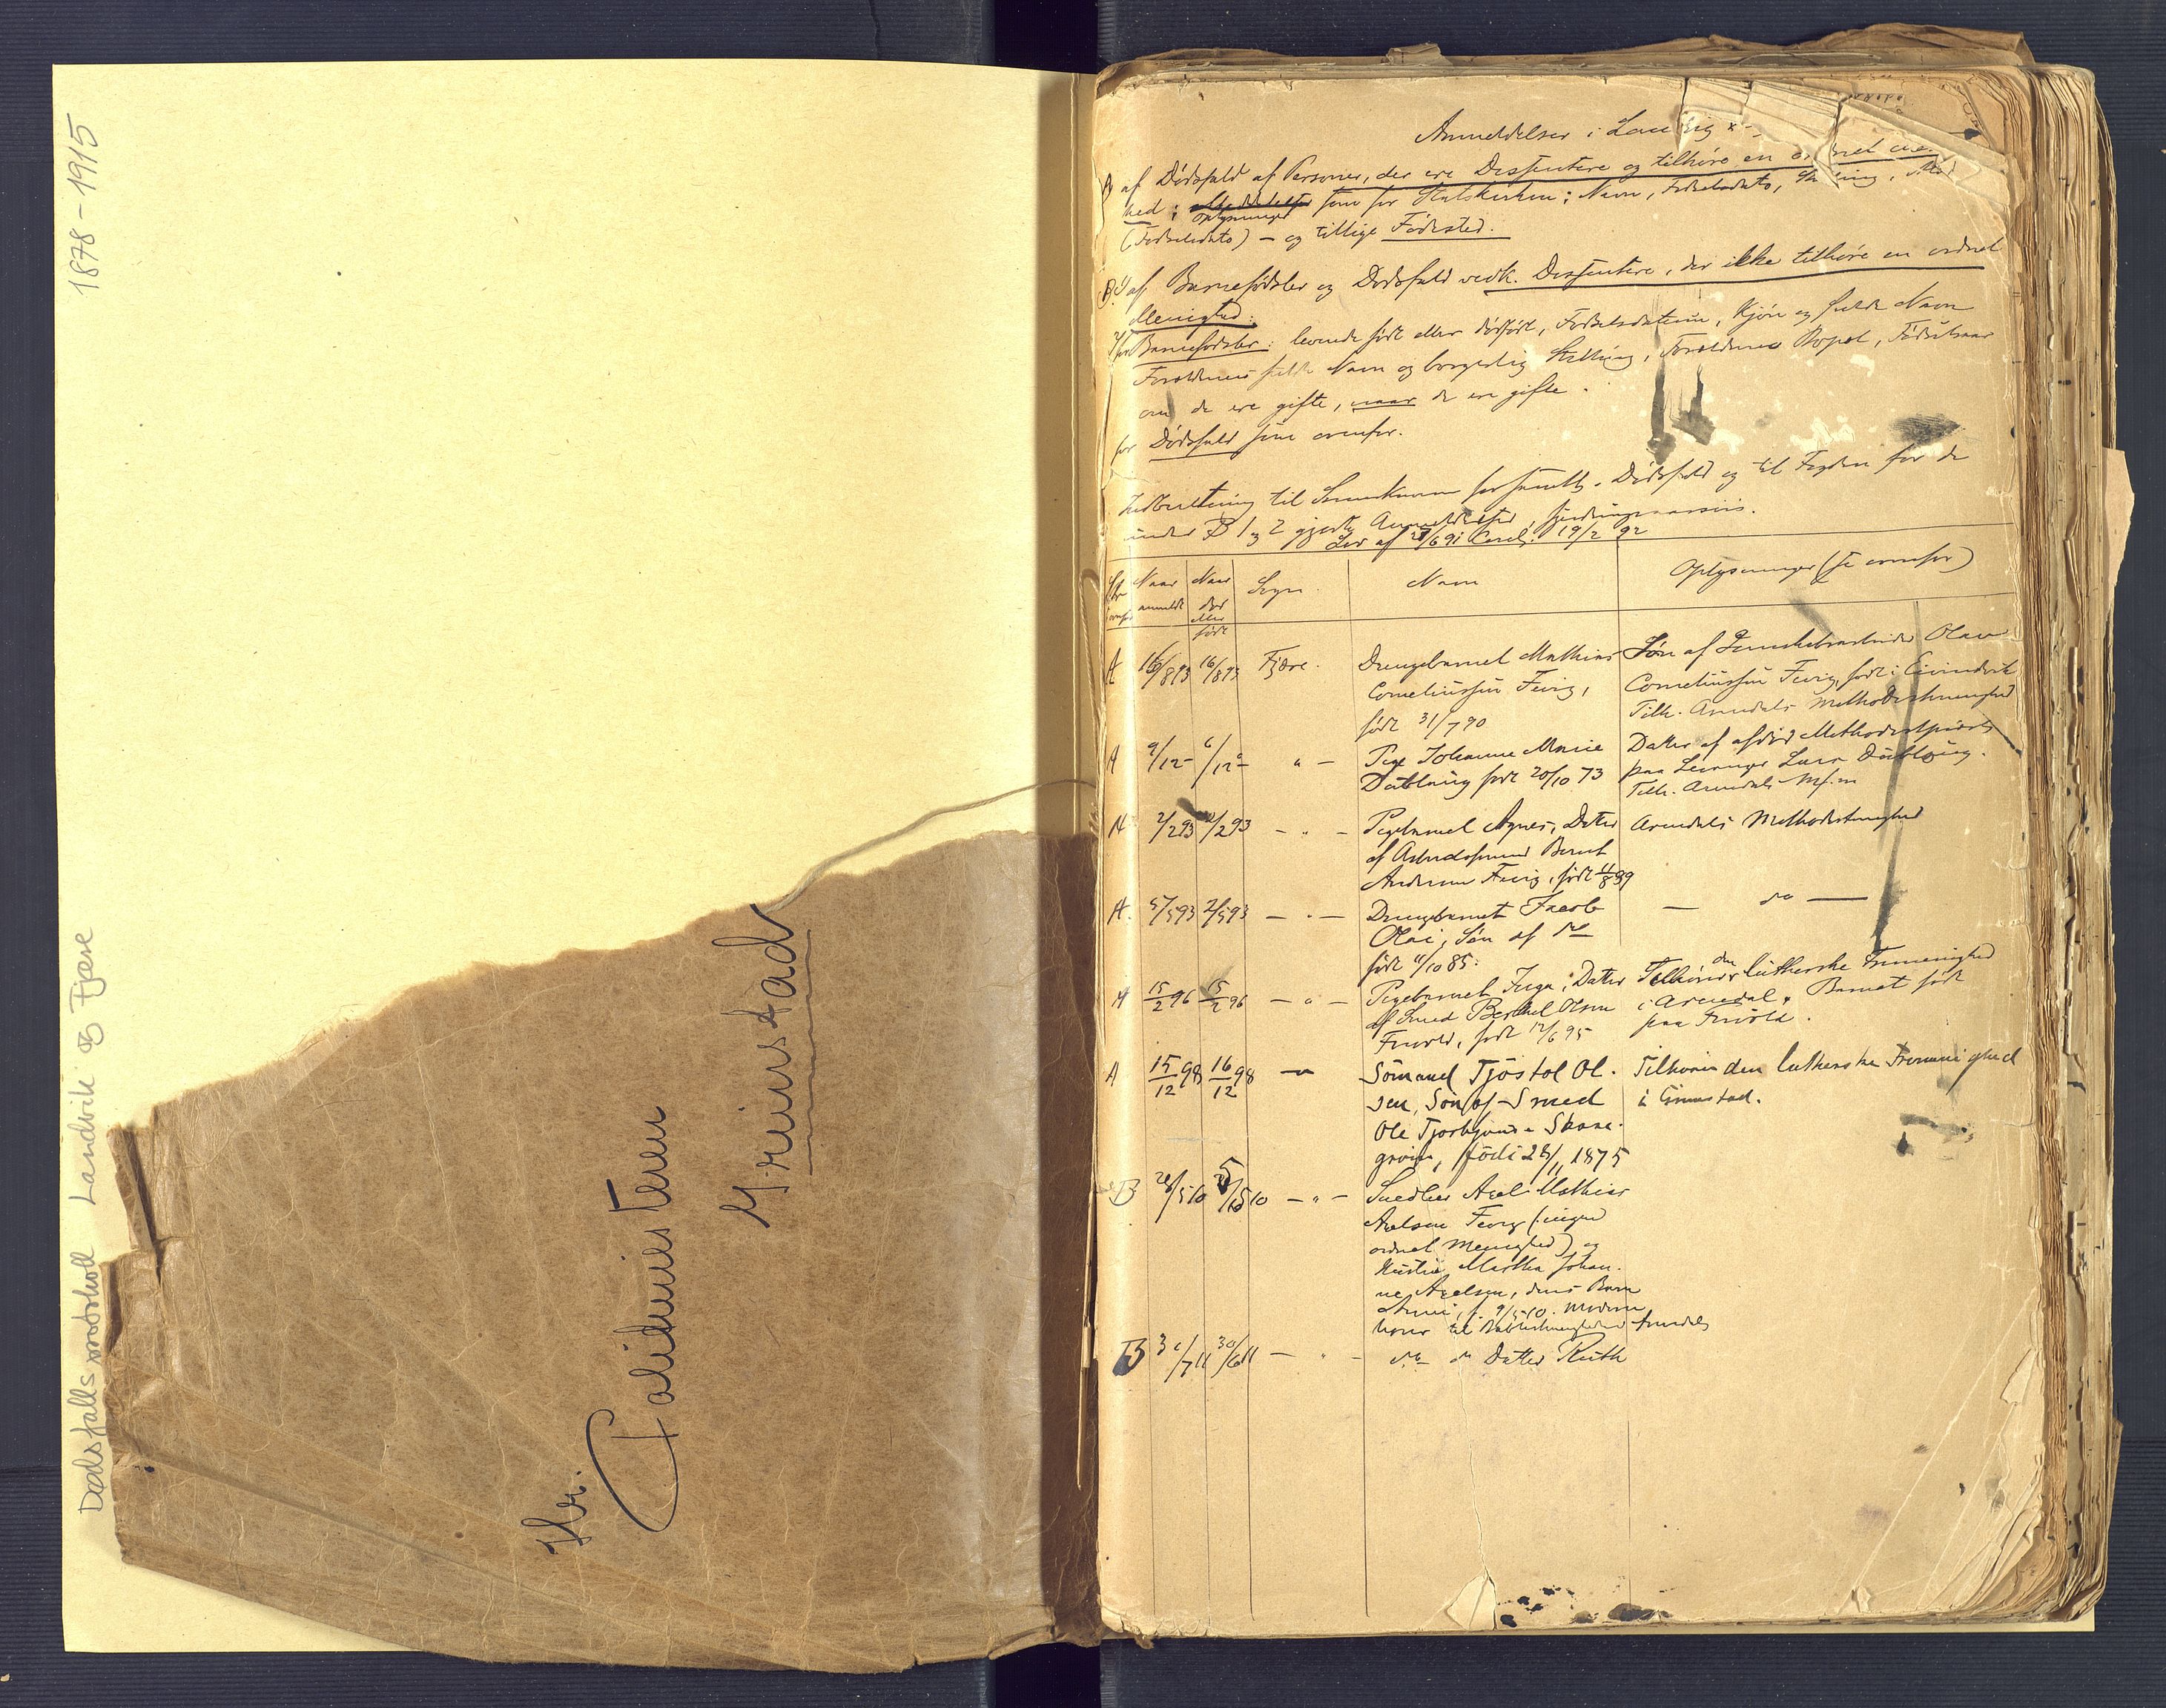 Dødsfalls protokoll Landvik og Fjære 1878-1915
Hr.
Politimesteren
Grimstad
Anmeldelser i
A af Dødsfald af Personer, der ere Dissentere og tilhøre en
hed: Oplysninger som for Statskirken: Navn, Fødselsdato,
(Fødselsdato) - og tillige Fødested.
B. af Barnefødsler og Dødsfald vedk. Dissentere, der ikke tilhøre en ordnet
Menighed:
for Barnefødsler: levende født eller dødfødt, Fødselsdatum, Kjøn og fulde Navn
Forældrenes fulde Navn og borgerlig Stilling, Forældrenes Bopæl, Fødselsaar
om de ere gifte, naar de ere gifte.
for Dødsfald som ovenfor.
Indberetning til Sorenskriveren for samtl. Dødsfald og til Fogden for de
under B 1 og 2 gjorte Anmeldelser, fjerdingaarsvis.
Lov af 27/6 91 Circul. 19/2 92
Naar anmeldt
Naar død eller født
Sogn.
Navn
Oplysninger (se ovenfor)
A 16/8 93 16/8 93 Fjære. Drengebarnet Mathias Søn af Olaus
Corneliussen Fevig, Corneliussen Fevig, født i
født 31/7 90 Tilh. Arendals Methodistmenighed
A 9/12 - 6/12 - " - Pige Johanne Marie Datter af afdød Methodistpræst
født 20/10 73 paa Levanger Lars
Tilh. Arendals M.f.m
A 2/2 93 2/2 93 - " - Pigebarnet Agnes, Datter Arendals Methodistmenighed
af Arbeidsmand Bernt
Andersen Fevig, født
A. 5/5 93 2/5 93 - " - Drengebarnet Jacob - do -
Olai, Søn af do
født 11/10 85.
A 15/2 96 15/2 96 - " - Pigebarnet Inga, Datter Tilhører den lutherske Frimenighed
af Smed Berthel Olsen i Arendal. Barnet født
født 12/6 95 paa
A 15/12 98 16/12 98 - " Sømand Tjøstol Ol- Tilhører den lutherske Frimenighed
sen, Søn af Smed i Grimstad.
Ole Tjorbjørns. Skare-
grøin, født 28/11 1875
B 28/5 10 - " - Snedker Axel Mathias
Axelsen Fevig (ingen
ordnet Menighed) og
Hustru Martha Johan-
ne Axelsen, deres Barn
f. 9/5 10. Moderen
hører til Baptistmenigheden Arendal
B 3 1/7 11 30/6 11 - " - do do Datter Ruth